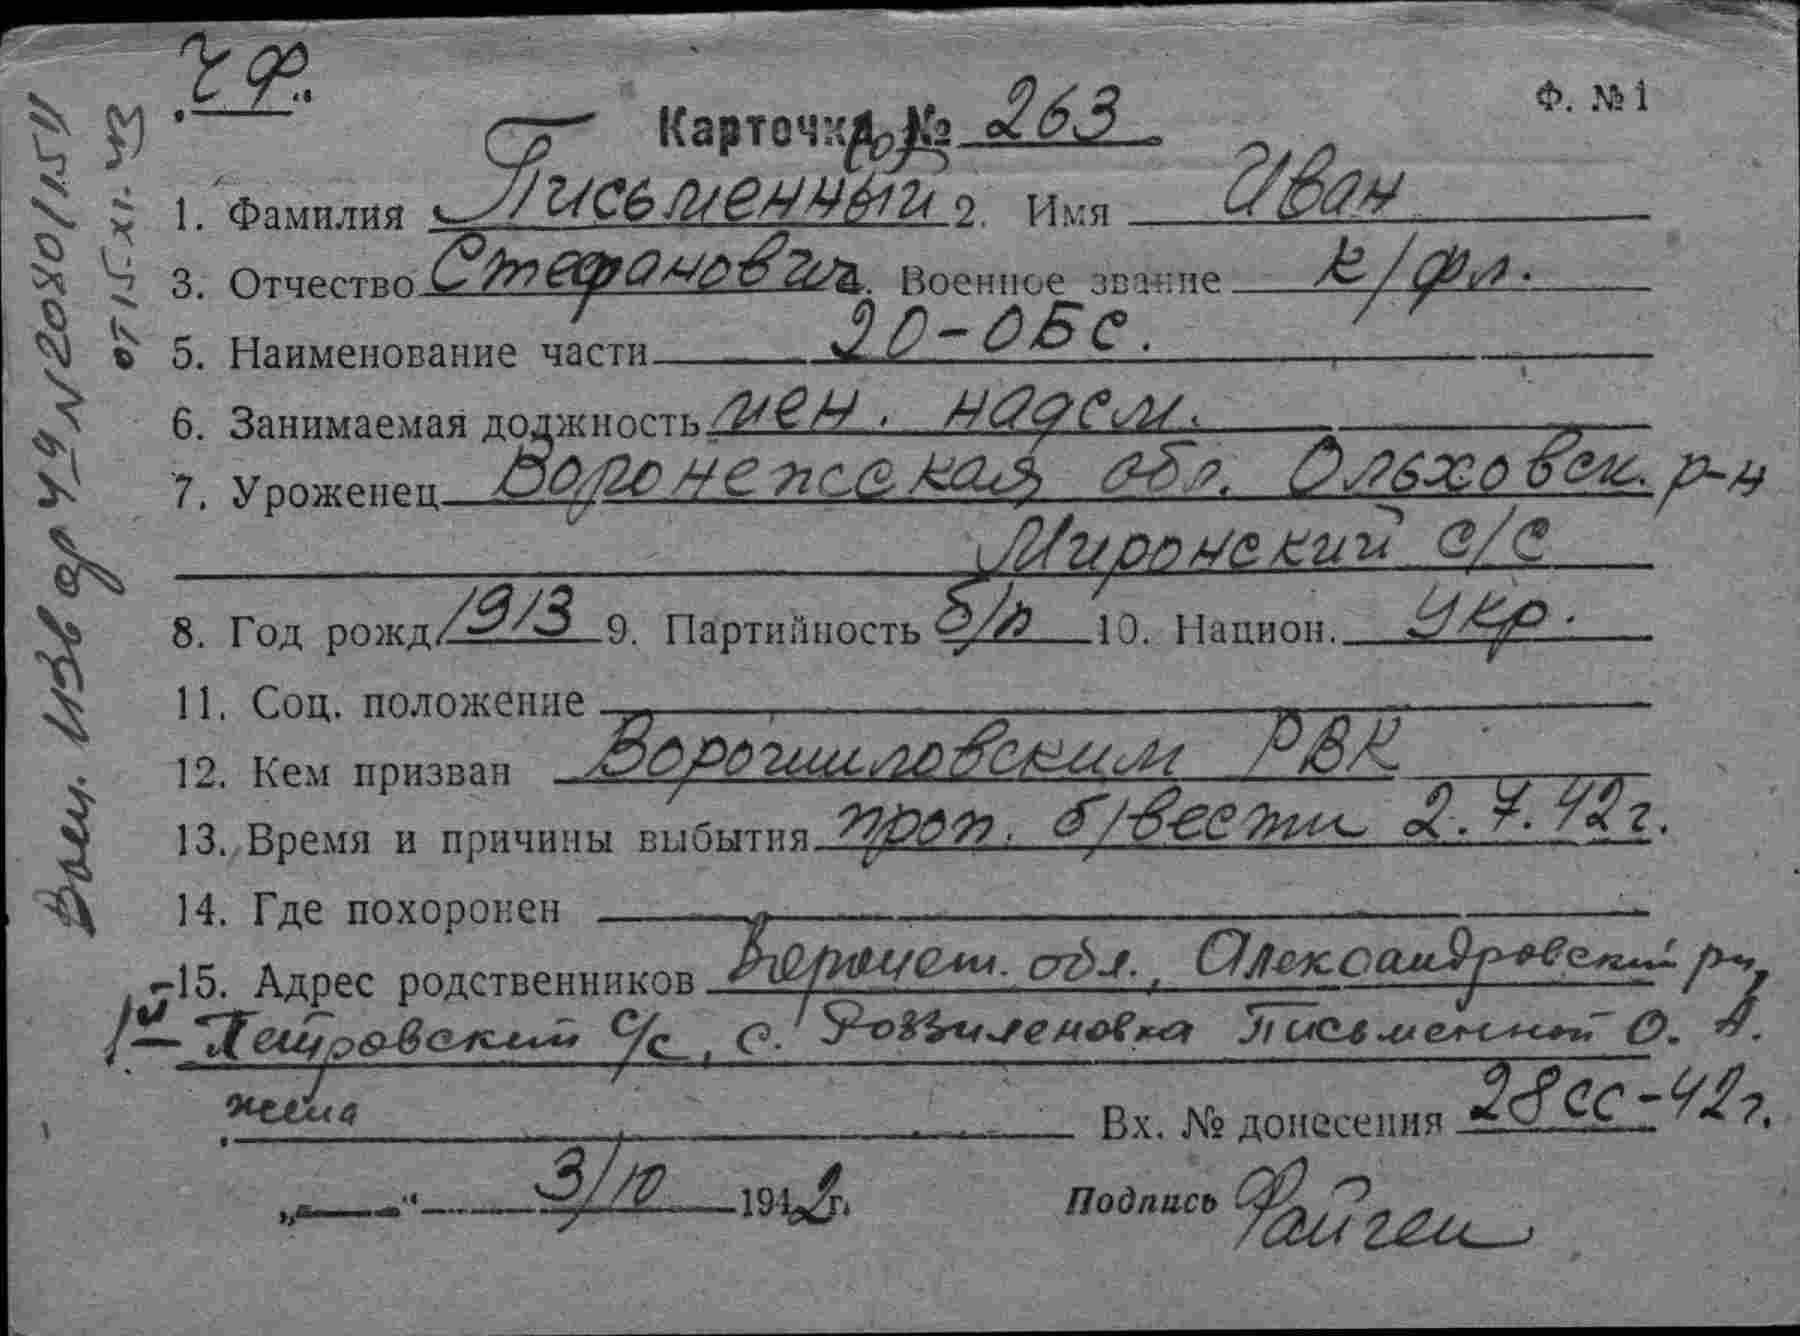 Ч Ф.
Ф. № 1
Карточка № 263
1. Фамилия Письменный 2. Имя Иван
3. Отчество Стефанович. Военное звание к/фл.
5. Наименование части 20-ОБС.
6. Занимаемая должность
7. Уроженец Воронежская обл. Ольховск. р-н
Миронский с/с
8. Год рожд. 1913 9. Партийность б/п 10. Национ. Укр.
11. Соц. положение
12. Кем призван Ворошиловским РВК
13. Время и причины выбытия проп. б/вести 2.7.42г.
14. Где похоронен
15. Адрес родственников обл., Александровский р-н,
Петровский с/с, с. Письменный О. А.
жена
Вх. № донесения 28сс-42г.
„ “ 3/10 1942г.
Подпись
Выс. Изв ф 4У № 2080/1511
от 15-XI-43